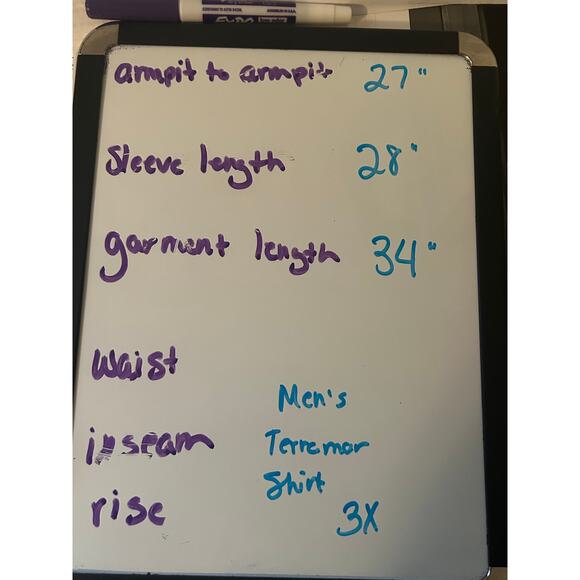 EXPO
armpit to armpit 27"
Sleeve length 28"
garment length 34"
waist
inseam
rise
Men's
Terramar
Shirt
3X